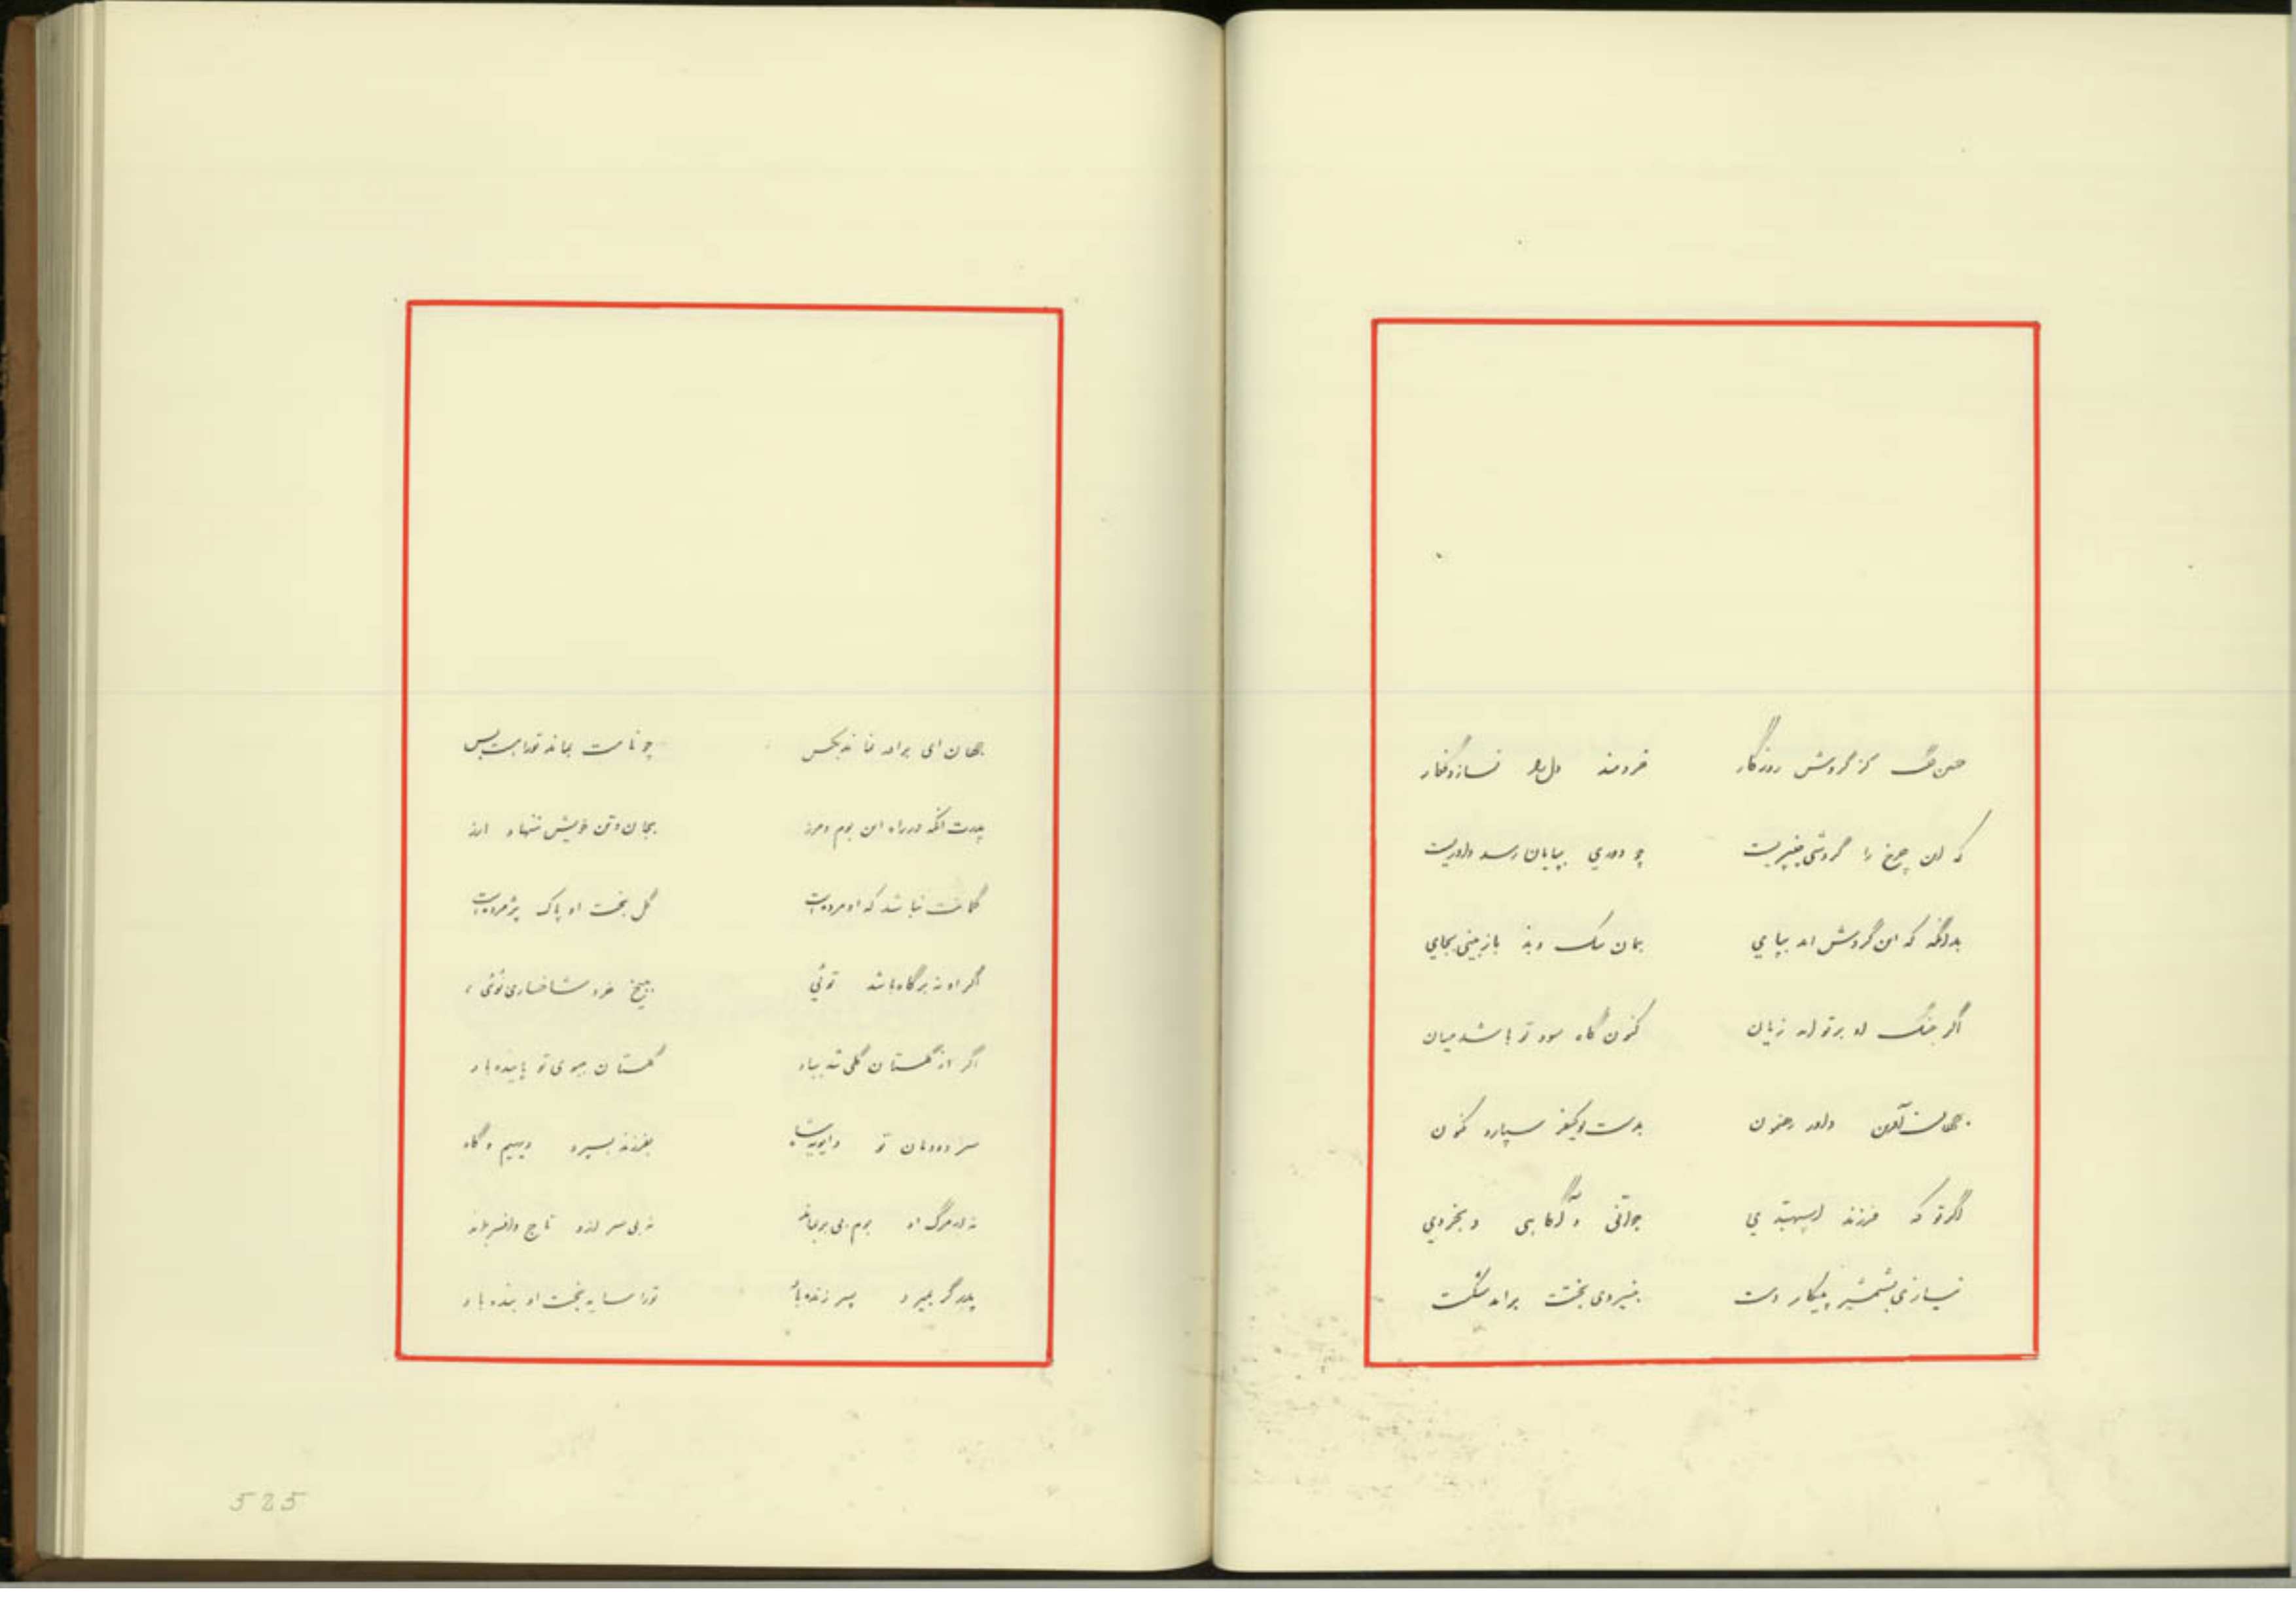 کز گردش روزگار خردمند دل را نسازد فگار
که این چرخ را گردشی چنبریست چو دوری بپایان رسد داوریست
بدانگه که این گردش آید بپای بمان نیک و بد باز بینی بجای
اگر جنگ او بر تو آرد زیان کنون گاه سود تو باشد میان
جهان آفرین داور رهنمون بدست تو کیفر سپارد کنون
اگر تو که فرزند اسپهبدی جوانی و آگاهی و بخردی
نیازی بشمشیر پیکار دست بنیروی بخت براید شکست
جهان ای برادر نماند بکس چو نامت بماند تو را هست بس
پدرت آنکه در راه این بوم و مرز بجان و تن خویش ننهاد ارز
گمانت نباشد که او مرده است گل بخت او پاک پژمرده است
اگر او نه بر گاه باشد توئی ببیخ خرد شاخساری نوئی
اگر از گلستان گلی شد بباد گلستان ببوی تو پاینده باد
سر دودمان تو و ایوبشاه بفرزند بسپرد دیهیم و گاه
نه از مرگ او بوم بی بر بماند نه بی سر ازو تاج و افسر بماند
پدر گر بمیرد پسر زنده باد تو را سایه بخت او بنده باد
525